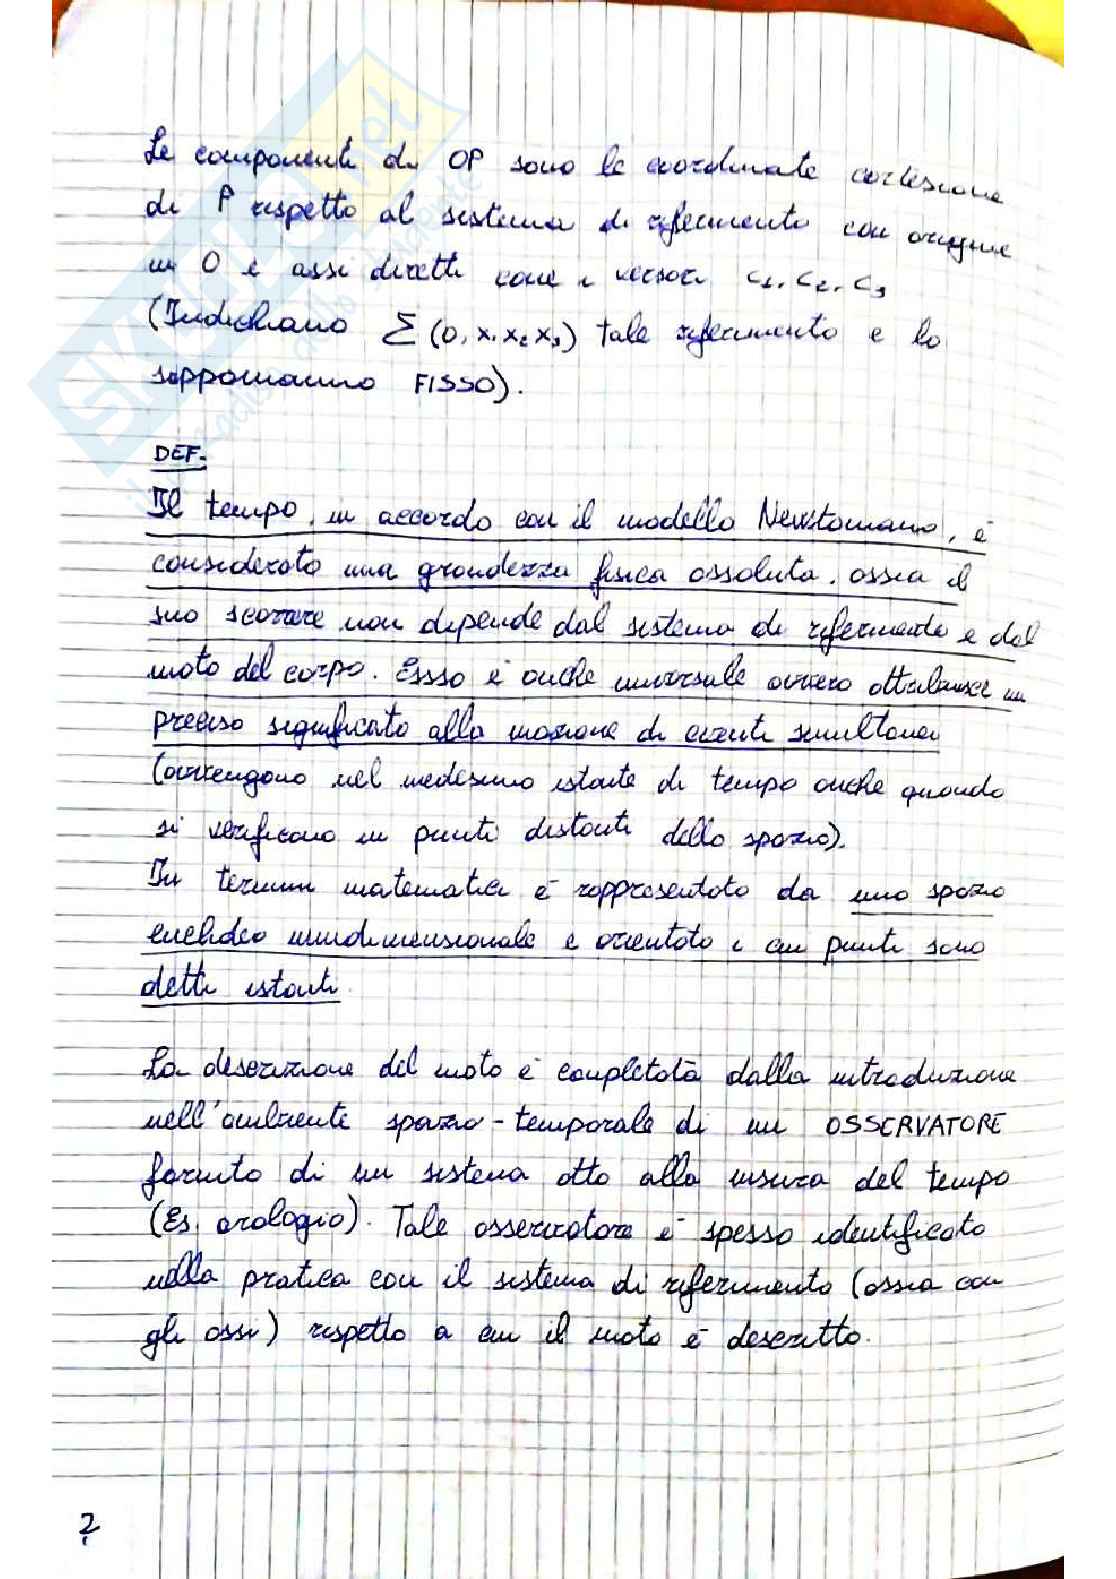 Le componenti di OP sono le coordinate cartesiane
di P rispetto al sistema di riferimento con origine
in O e assi diretti come i versori c₁, c₂, c₃
(Indichiamo Σ(0, x₁ x₂ x₃) tale riferimento e lo
soppomiamo FISSO).
DEF.
Il tempo, in accordo con il modello Newtoniano, è
considerato una grandezza fisica assoluta, ossia il
suo scorrere non dipende dal sistema di riferimento e dal
moto del corpo. Essso è anche universale ovvero attribuisce un
preciso significato alla nozione di eventi simultanei
(avvengono nel medesimo istante di tempo anche quando
si verificano in punti distanti dello spazio).
In termini matematici è rappresentato da uno spazio
euclideo unidimensionale e orientato i cui punti sono
detti istanti.
La descrizione del moto è completata dalla introduzione
nell'ambiente spazio-temporale di un OSSERVATORE
fornito di un sistema atto alla misura del tempo
(Es. orologio). Tale osservatore è spesso identificato
nella pratica con il sistema di riferimento (ossia con
gli assi) rispetto a cui il moto è descritto.
2
SKUOLA.net